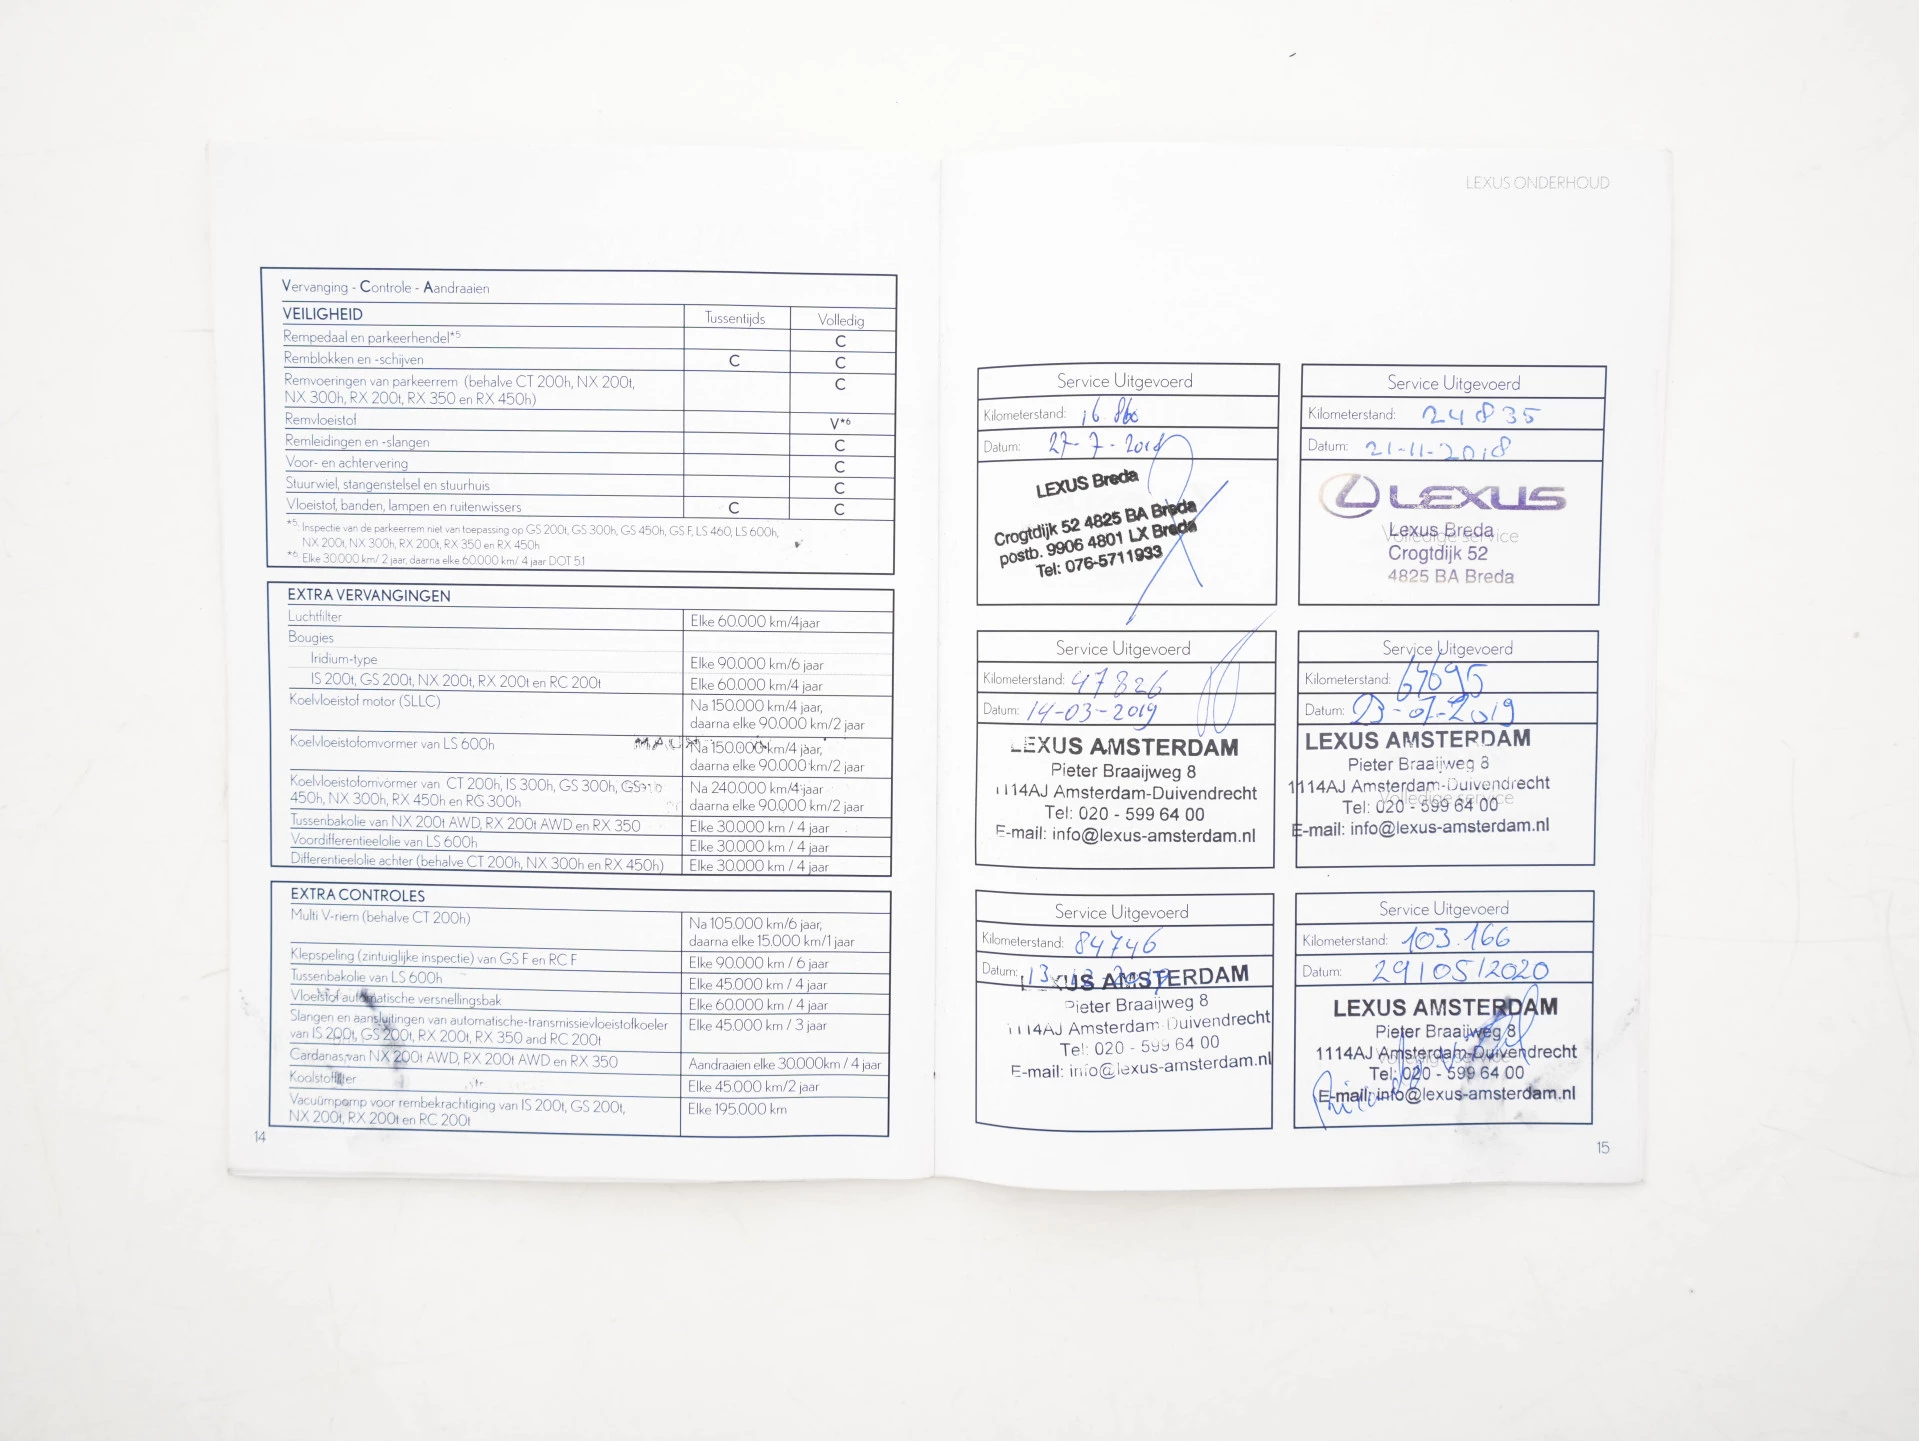 Vervanging - Controle - Aandraaien
VEILIGHEID Tussentijds Volledig
Rempedaal en parkeerhendel*5 C
Remblokken en -schijven C C
Remvoeringen van parkeerrem (behalve CT 200h, NX 200t, C
NX 300h, RX 200t, RX 350 en RX 450h)
Remvloeistof V*6
Remleidingen en -slangen C
Voor- en achtervering C
Stuurwiel, stangenstelsel en stuurhuis C
Vloeistof, banden, lampen en ruitenwissers C C
*5: Inspectie van de parkeerrem niet van toepassing op GS 200t, GS 300h, GS 450h, GS F, LS 460, LS 600h,
NX 200t, NX 300h, RX 200t, RX 350 en RX 450h
*6: Elke 30.000 km/ 2 jaar, daarna elke 60.000 km/ 4 jaar DOT 5.1
EXTRA VERVANGINGEN
Luchtfilter Elke 60.000 km/4jaar
Bougies
Iridium-type Elke 90.000 km/6 jaar
IS 200t, GS 200t, NX 200t, RX 200t en RC 200t Elke 60.000 km/4 jaar
Koelvloeistof motor (SLLC) Na 150.000 km/4 jaar,
daarna elke 90.000 km/2 jaar
Koelvloeistofomvormer van LS 600h Na 150.000 km/4 jaar,
daarna elke 90.000 km/2 jaar
Koelvloeistofomvormer van CT 200h, IS 300h, GS 300h, GS Na 240.000 km/4 jaar
450h, NX 300h, RX 450h en RC 300h daarna elke 90.000 km/2 jaar
Tussenbakolie van NX 200t AWD, RX 200t AWD en RX 350 Elke 30.000 km / 4 jaar
Voordifferentieelolie van LS 600h Elke 30.000 km / 4 jaar
Differentieelolie achter (behalve CT 200h, NX 300h en RX 450h) Elke 30.000 km / 4 jaar
EXTRA CONTROLES
Multi V-riem (behalve CT 200h) Na 105.000 km/6 jaar,
daarna elke 15.000 km/1 jaar
Klepspeling (zintuiglijke inspectie) van GS F en RC F Elke 90.000 km / 6 jaar
Tussenbakolie van LS 600h Elke 45.000 km / 4 jaar
Vloeistof automatische versnellingsbak Elke 60.000 km / 4 jaar
Slangen en aansluitingen van automatische-transmissievloeistofkoeler Elke 45.000 km / 3 jaar
van IS 200t, GS 200t, RX 200t, RX 350 and RC 200t
Cardanas van NX 200t AWD, RX 200t AWD en RX 350 Aandraaien elke 30.000km / 4 jaar
Koolstoffilter Elke 45.000 km/2 jaar
Vacuümpomp voor rembekrachtiging van IS 200t, GS 200t, Elke 195.000 km
NX 200t, RX 200t en RC 200t
14
LEXUS ONDERHOUD
Service Uitgevoerd
Kilometerstand: 16
Datum: 27-7-2018
LEXUS Breda
Crogtdijk 52 4825 BA Breda
postb. 9906 4801 LX Breda
Tel: 076-5711933
Service Uitgevoerd
Kilometerstand: 24835
Datum: 21-11-2018
LEXUS
Volledige service
Lexus Breda
Crogtdijk 52
4825 BA Breda
Service Uitgevoerd
Kilometerstand: 47826
Datum: 14-03-2019
LEXUS AMSTERDAM
Pieter Braaijweg 8
1114AJ Amsterdam-Duivendrecht
Tel: 020 - 599 64 00
E-mail: info@lexus-amsterdam.nl
Service Uitgevoerd
Kilometerstand: 67695
Datum: 23-07-2019
LEXUS AMSTERDAM
Pieter Braaijweg 8
1114AJ Amsterdam-Duivendrecht
Tel: 020 - 599 64 00
Volledige service
E-mail: info@lexus-amsterdam.nl
Service Uitgevoerd
Kilometerstand: 84746
Datum:
LEXUS AMSTERDAM
Pieter Braaijweg 8
1114AJ Amsterdam-Duivendrecht
Tel: 020 - 599 64 00
E-mail: info@lexus-amsterdam.nl
Service Uitgevoerd
Kilometerstand: 103.166
Datum: 29/05/2020
LEXUS AMSTERDAM
Pieter Braaijweg 8
1114AJ Amsterdam-Duivendrecht
Tel: 020 - 599 64 00
E-mail: info@lexus-amsterdam.nl
15